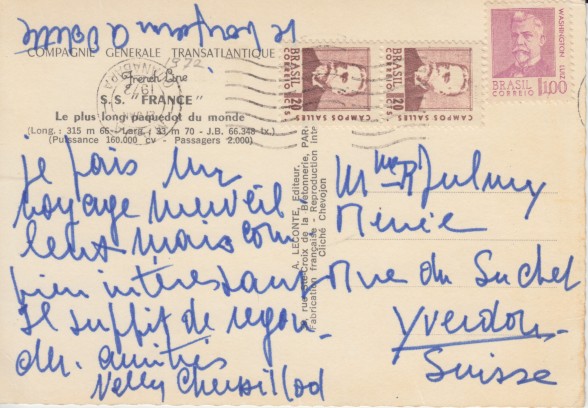 COMPAGNIE GENERALE TRANSATLANTIQUE
French Line
S.S. "FRANCE"
Le plus long paquebot du monde
(Long.: 315 m 66 - Larg.: 33 m 70 - J.B. 66.348 tx.)
(Puissance 160.000 cv - Passagers 2.000)
je fais un
voyage merveil
leux mais com
bien intéressant
Il suffit de regar-
der. amitiés
Nelly
A. LECONTE, Editeur,
rue Ste-Croix de la Bretonnerie, PAR
Fabrication française - Reproduction inte
Cliché Chevojon
BRASIL
CORREIO
20
CTS
CAMPOS SALLES
BRASIL
CORREIO
20
CTS
CAMPOS SALLES
WASHINGTON LUIZ
BRASIL
CORREIO
1,00
1972
Mme
rue du
Yverdon
Suisse